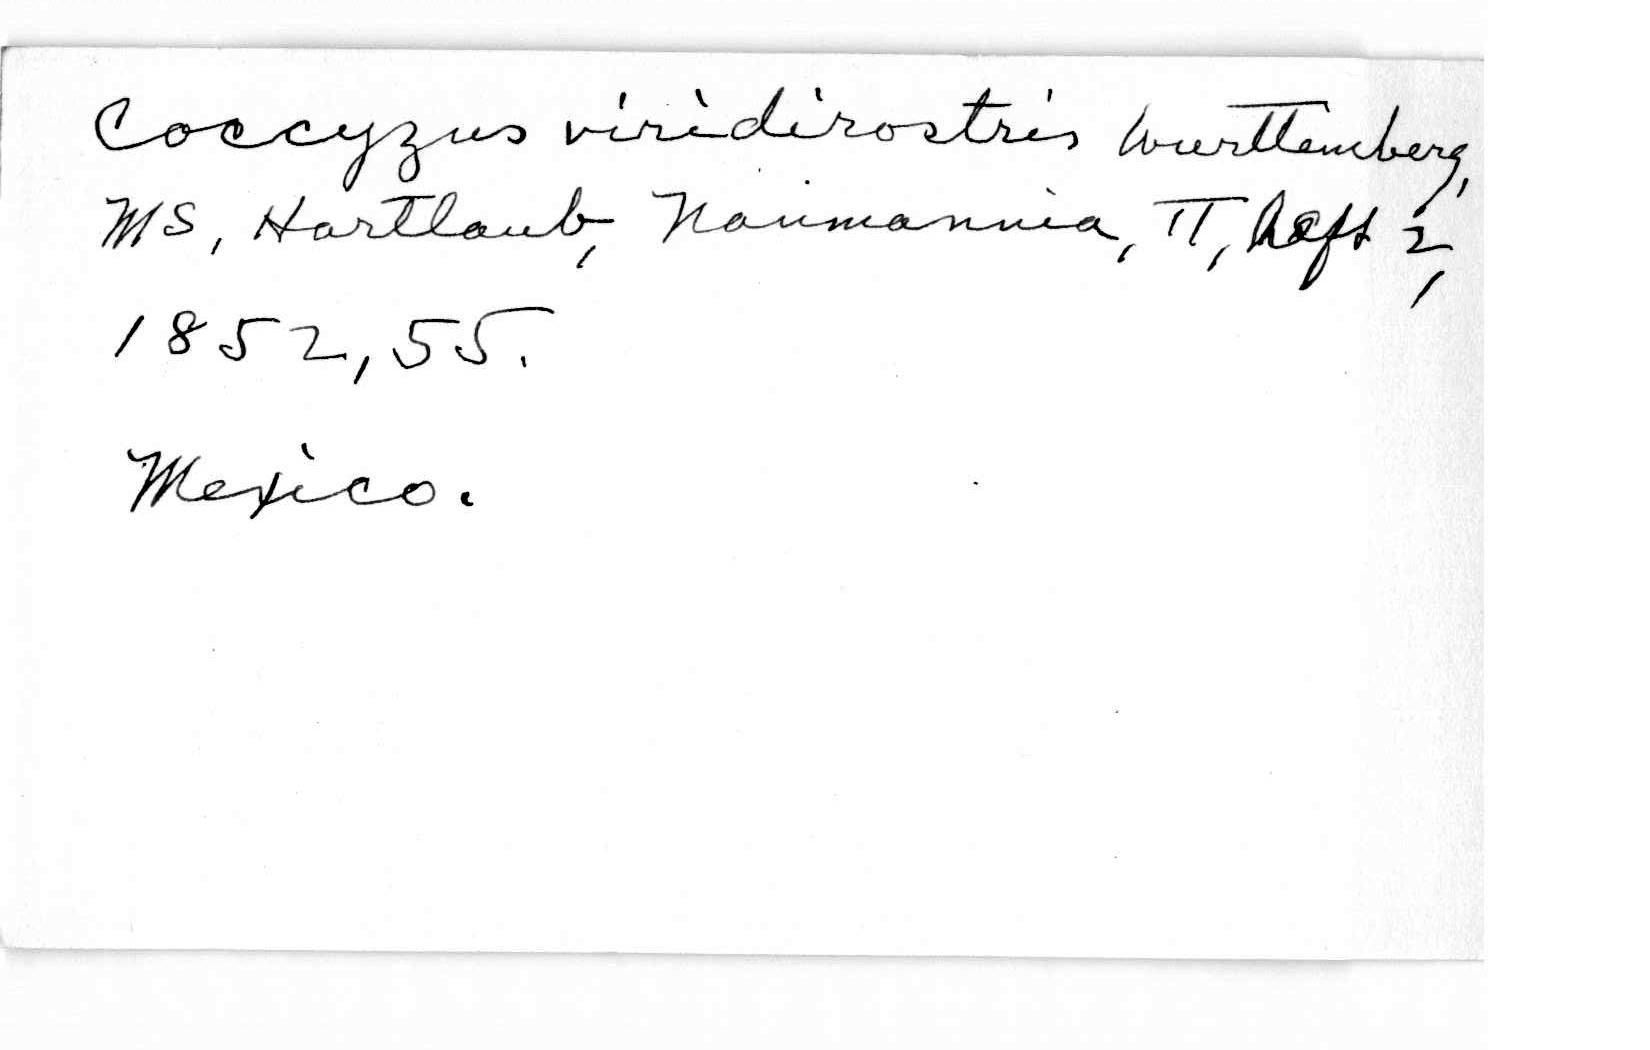 Coccyzus viridirostris Wurttemberg,
MS, Hartlaub, Naumannia, II, heft 2,
1852, 55.
Mexico.